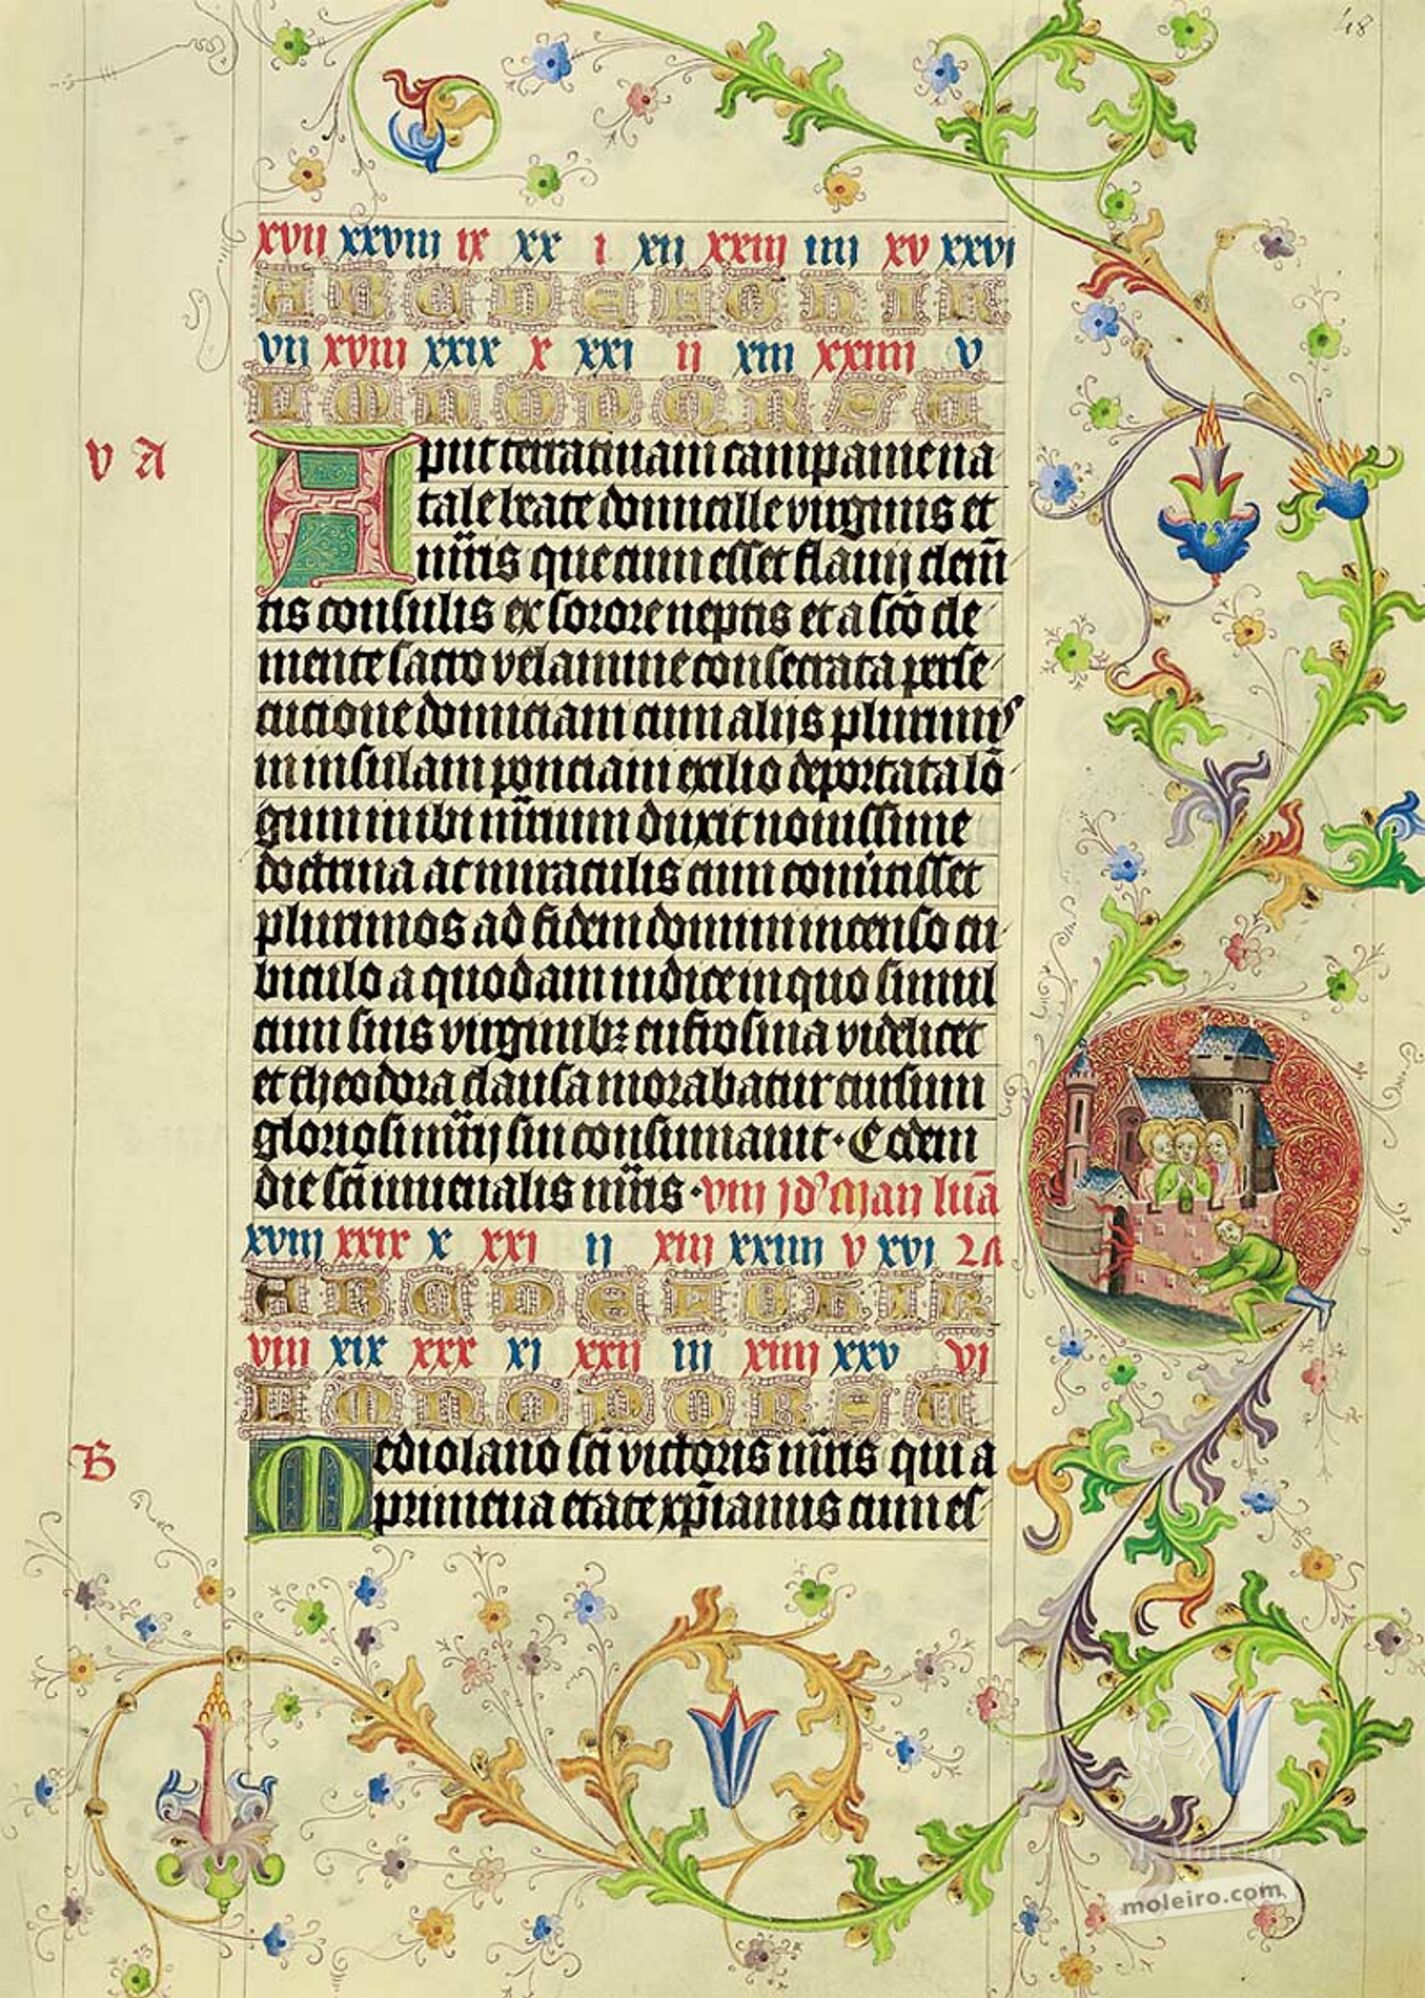 48
xvii xxviii ix xx i xii xxiii iiii xv xxvi
A B C D E F G H I K
vii xviii xxix x xxi ii xiii xxiiii v
L M N O P Q R S T
v A
Aput terracinam campanie na
tale beate domicille virginis et
mr̄is que cum esset flauij clem̄
tis consulis ex sorore neptis et a sc̄o cle
mente sacro velamine consecrata perse
cucione domiciani cum alijs plurimis
in insulam ponciam exilio deportata lō
gum inibi mr̄ium duxit nouissime
doctrina ac miraculis cum conūtisset
plurimos ad fidem domini incenso cu
biculo a quodam iudice in quo simul
cum suis virginibꝫ eufrosina videlicet
et theodora clausa morabatur cursum
gloriosi mr̄ij sui consumauit · Eodem
die sc̄i iuuenalis mr̄is · viii jd' maij lūa
xviii xxix x xxi ii xiii xxiiii v xvi 2A
A B C D E F G H I K
viii xix xxx xi xxii iii xiiii xxv vi
L M N O P Q R S T
B
Mediolano sc̄i victoris mr̄is qui a
primeua etate xp̄ianus cum es
M. Moleiro
moleiro.com